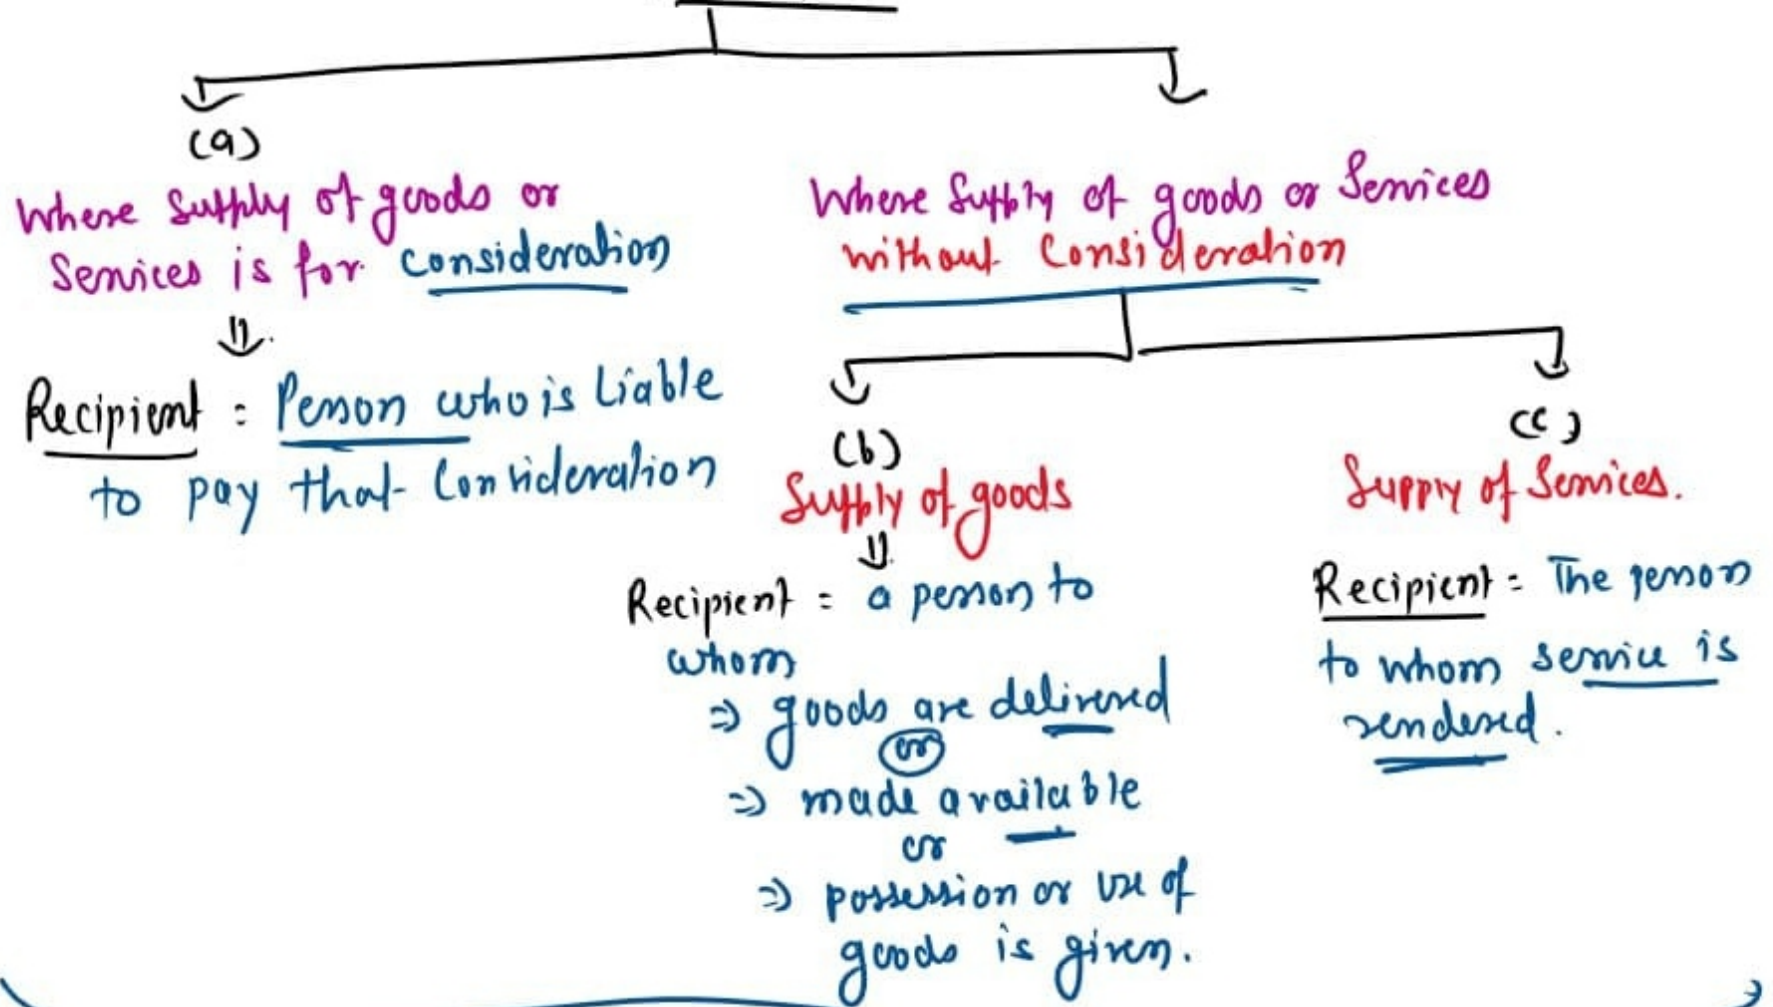 (a)
Where Supply of goods or
Services is for consideration
Recipient : Person who is Liable
to pay that Consideration
Where Supply of goods or Services
without Consideration
(b)
Supply of goods
Recipient = a person to
whom
⇒ goods are delivered
or
⇒ made available
or
⇒ possession or use of
goods is given.
(c)
Supply of Services.
Recipient = The person
to whom service is
rendered.